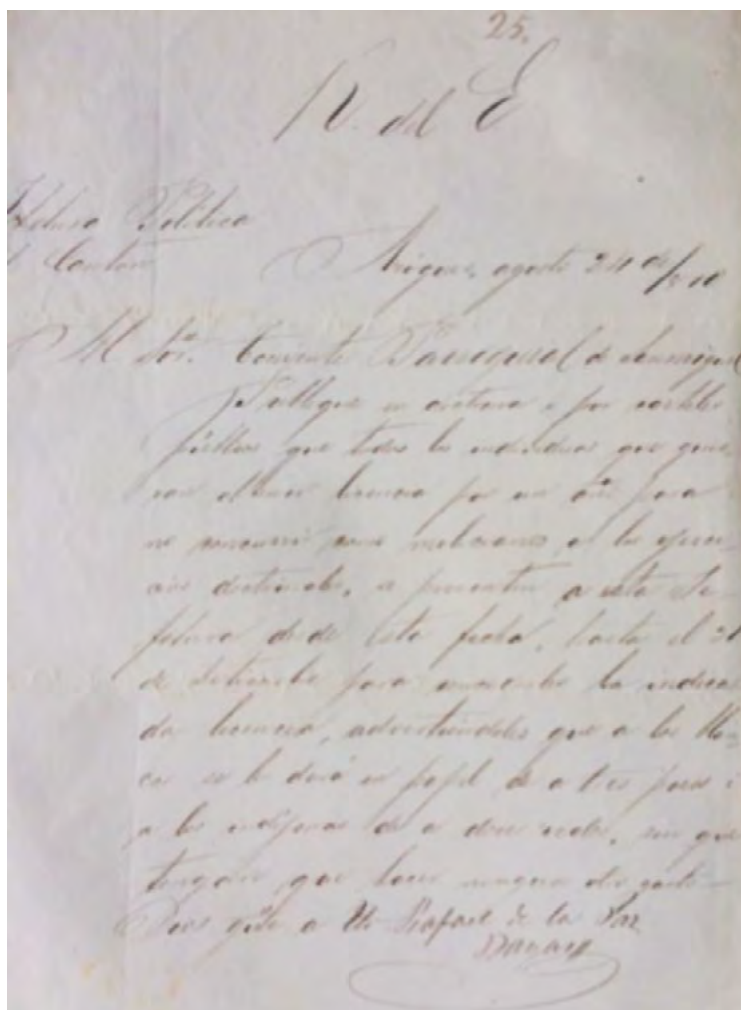 25.
R. del E
Jefatura Política
Cantón
agosto 24 de
Al Sor. Teniente Parroquial de Sanmiguel
por carteles
públicos que todos los individuos que quie-
ran obtener licencia por un año para
no concurrir como milicianos a los ejerci-
cios doctrinales, se presenten a esta Je-
fatura desde esta fecha, hasta el 20
de Setiembre para concederles la indica
da licencia, advirtiéndoles que a los blan-
cos se les dará en papel de a tres pesos i
a los indíjenas de a doce reales, sin que
tengan que hacer ningun otro gasto.
Dios gûe a U. Rafael de la Paz